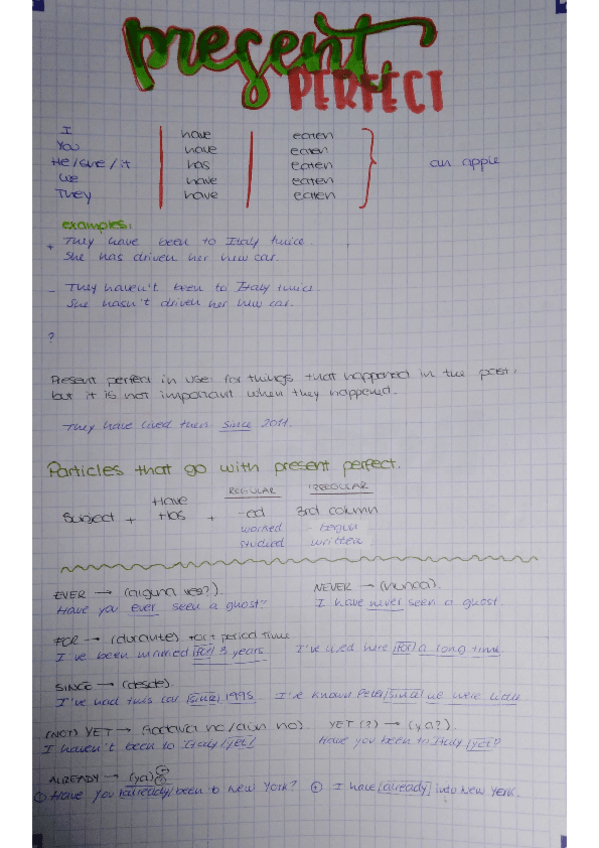 present
PERFECT
I have eaten
You have eaten
He/she/it has eaten an apple
we have eaten
They have eaten
examples:
+ They have been to Italy twice.
She has driven her new car.
- They haven't been to Italy twice.
She hasn't driven her new car.
?
Present perfect in use for things that happened in the past,
but it is not important when they happened.
They have lived then since 2011.
Particles that go with present perfect.
REGULAR IRREGULAR
Have
Subject + Has + -ed 3rd column
worked - begun
studied written
EVER → (alguna vez?). NEVER → (nunca).
Have you ever seen a ghost? I have never seen a ghost.
FOR → (durante). for + period time
I've been married for 3 years I've lived here for a long time.
SINCE → (desde).
I've had this car since 1995 I've known Peter since we were little
(NOT) YET → (todavía no/aún no). YET (?) → (ya?).
I haven't been to Italy yet. Have you been to Italy yet?
ALREADY → (ya)
Have you already been to New York? + I have already New York.